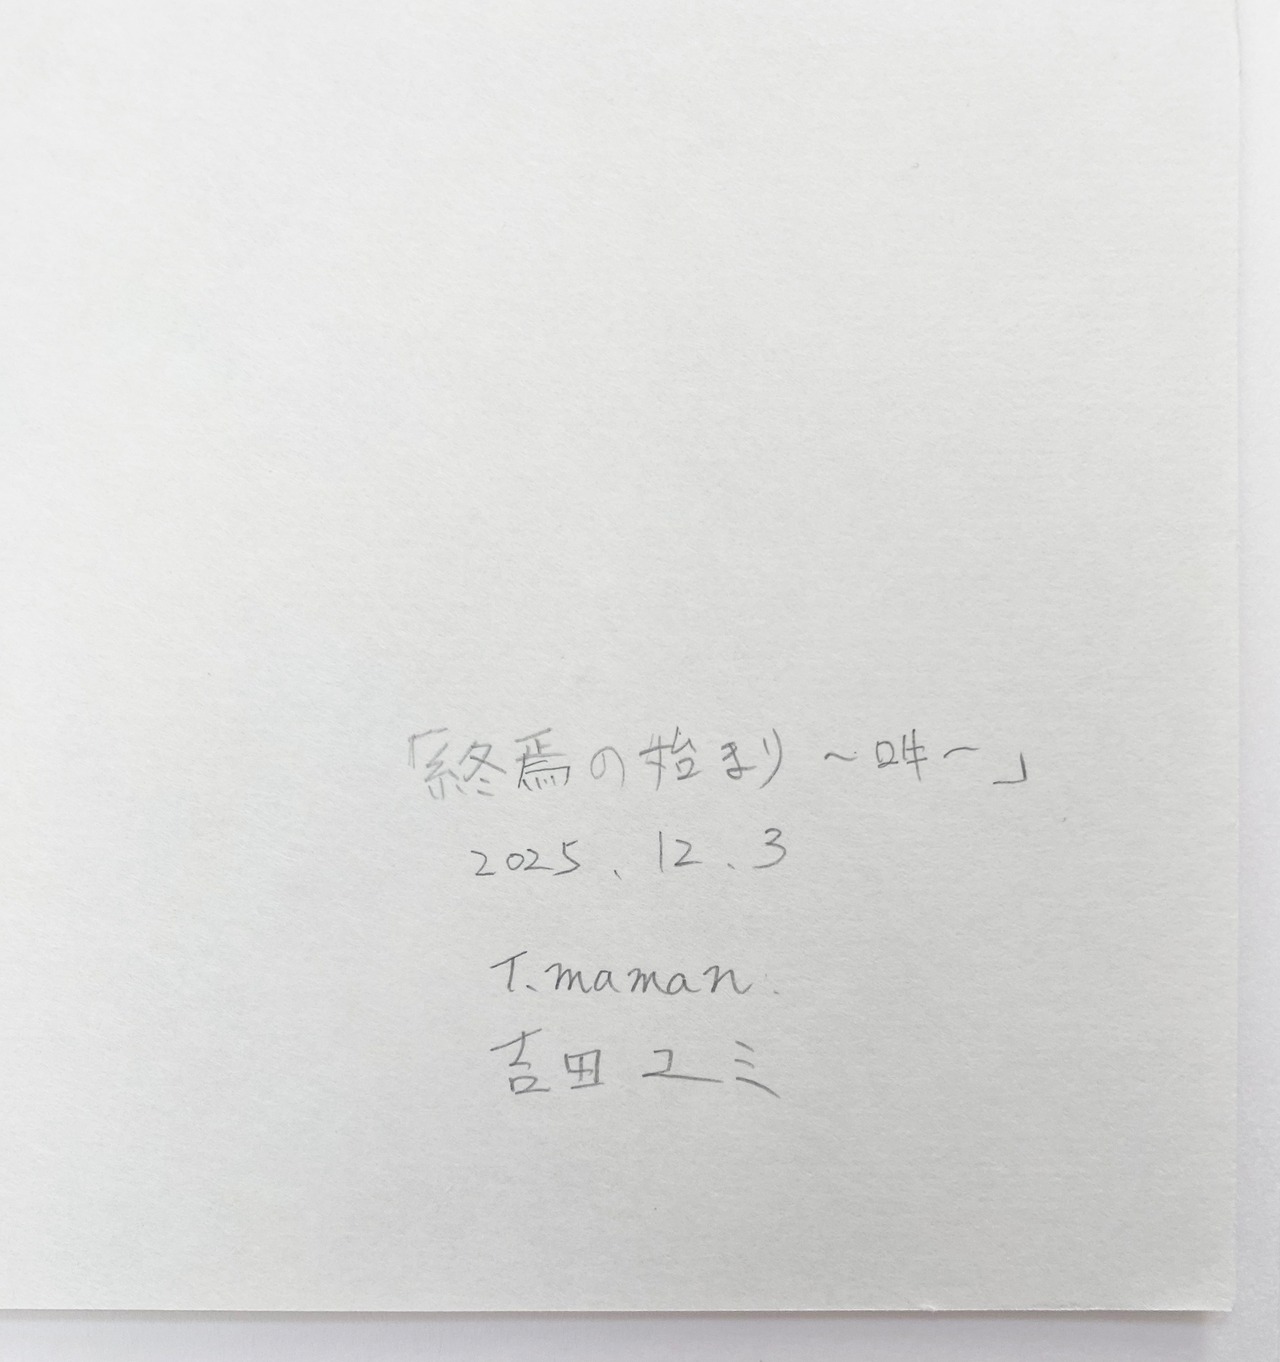 「終焉の始まり～叫～」
2025.12.3
T.maman.
吉田ユミ